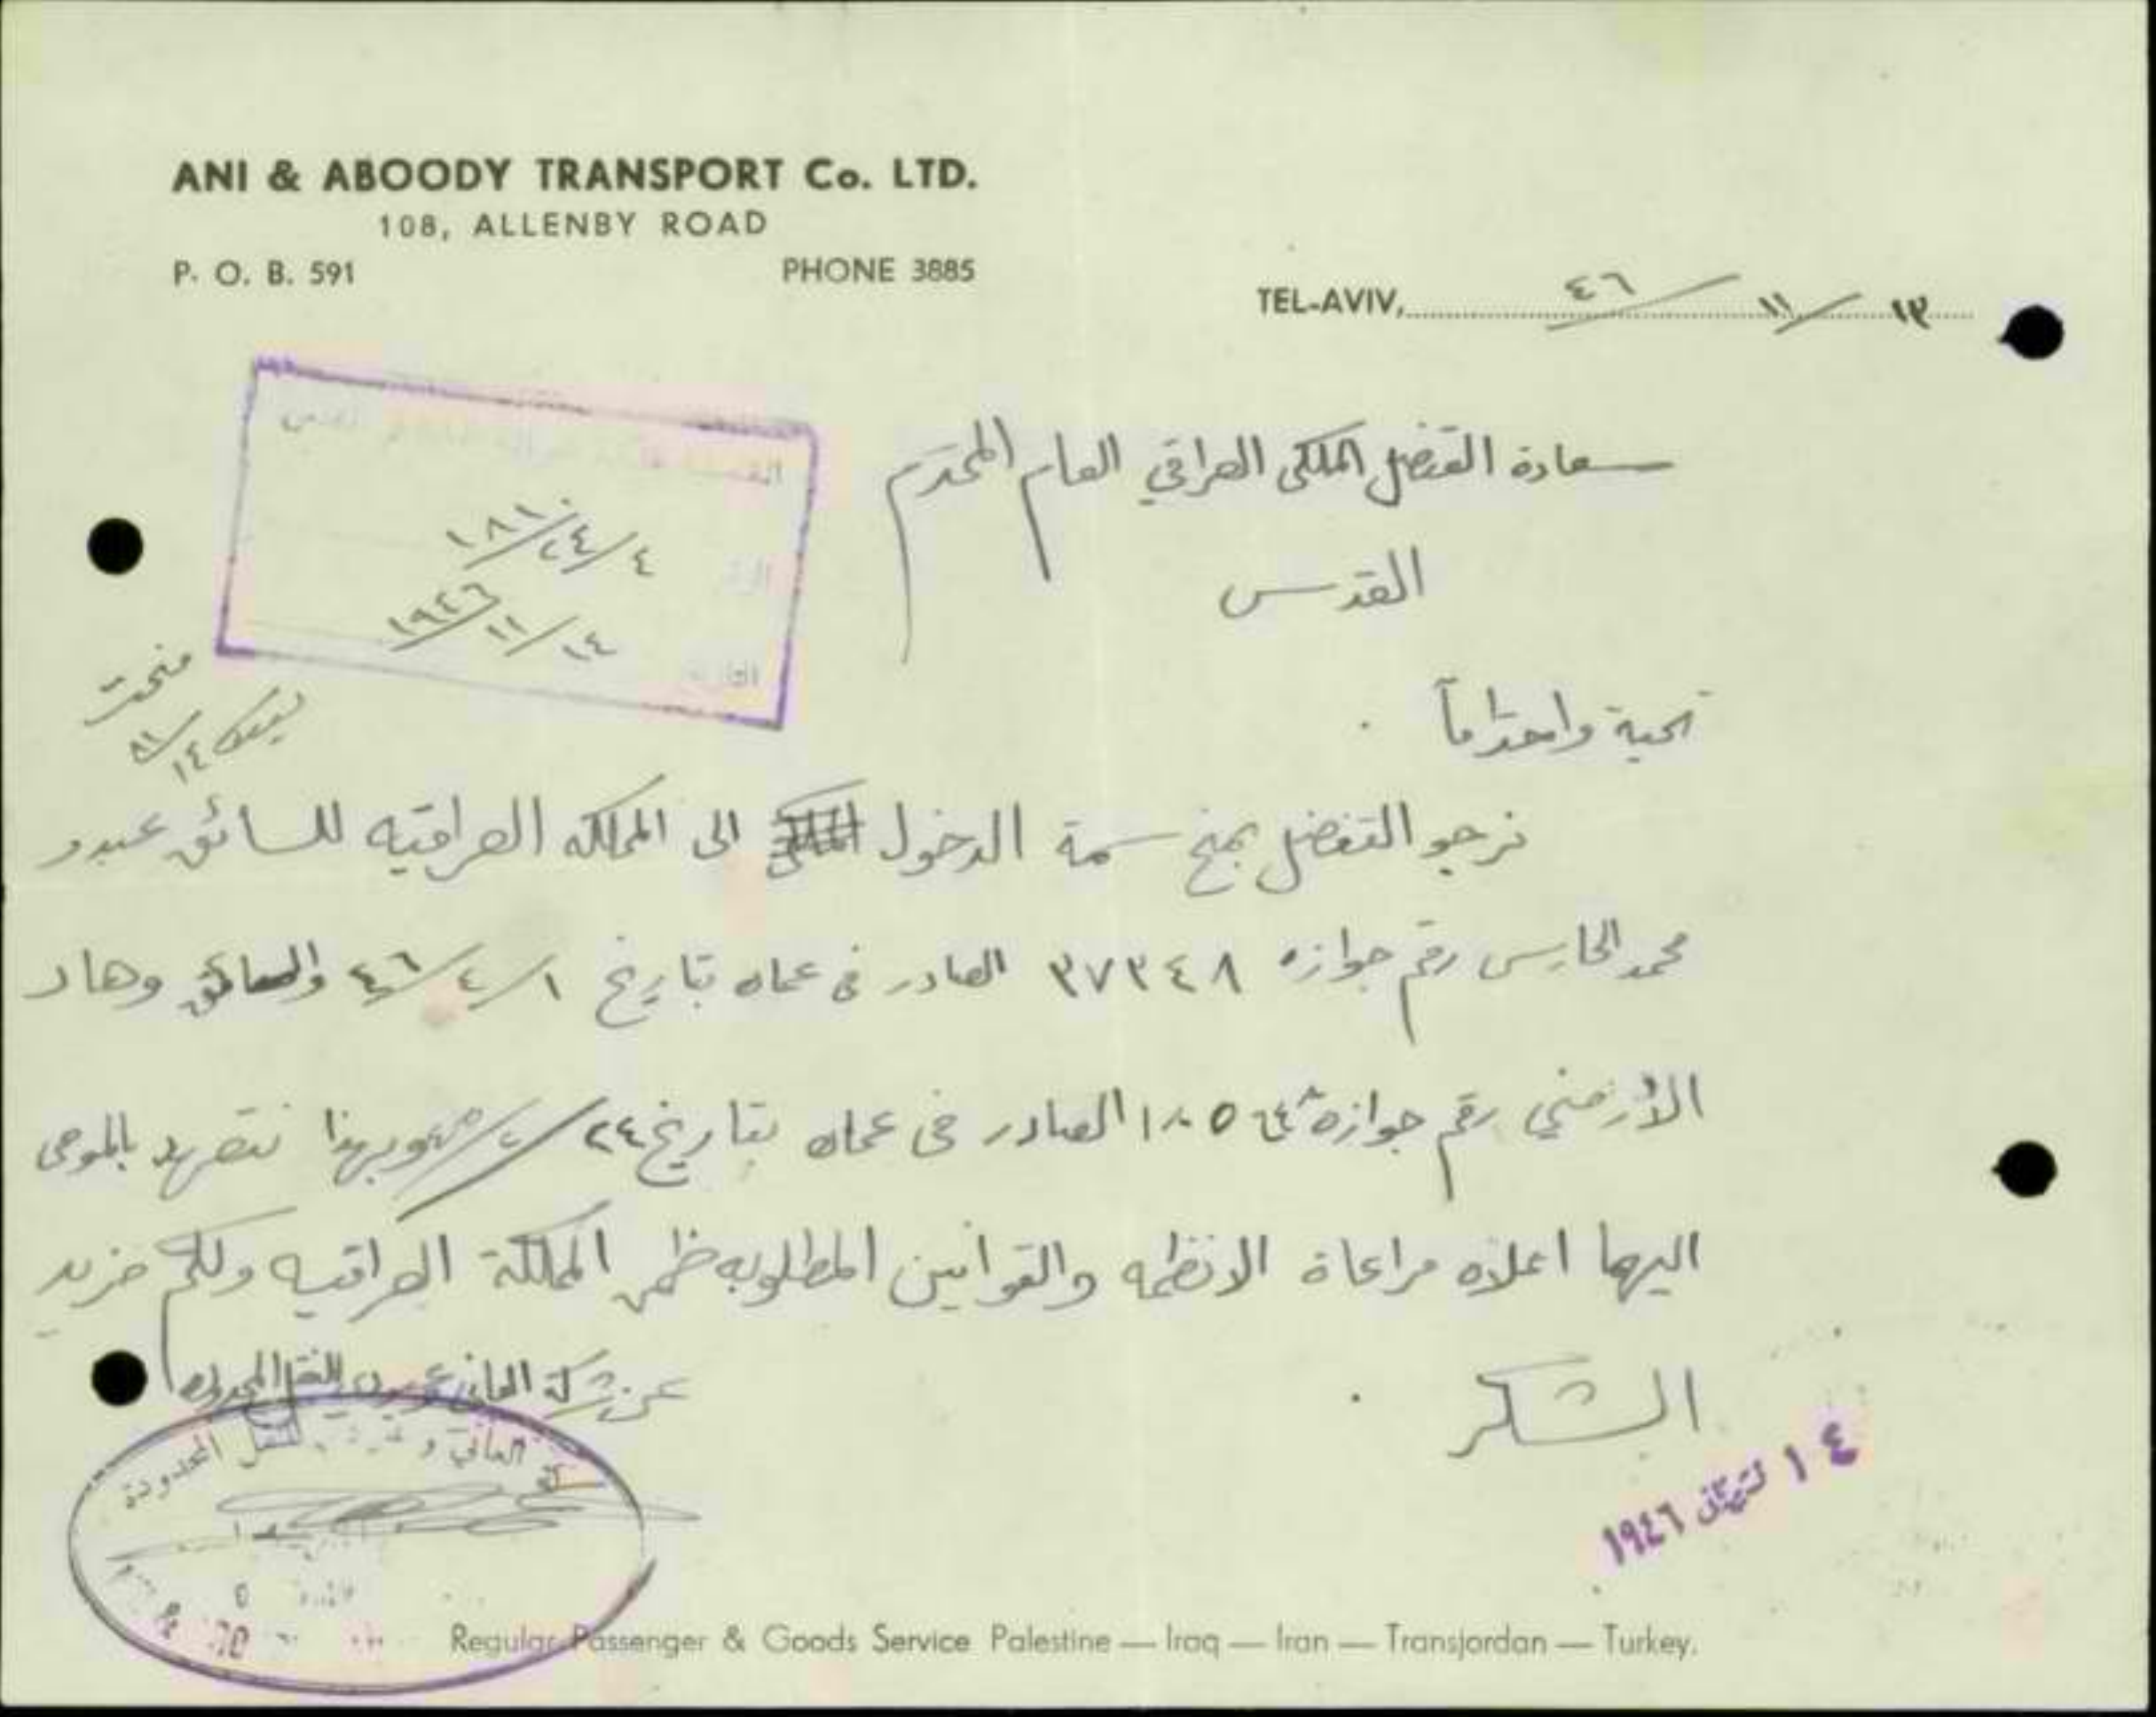 ANI & ABOODY TRANSPORT Co. LTD.
108, ALLENBY ROAD
P. O. B. 591 PHONE 3885
TEL-AVIV, ١٣/١١/٤٦
سعادة القنصل الملكي العراقي العام المحترم
القدس
٤/٢٤/١٨١٠
١٤/١١/١٩٤٦
منحت
١٤/١١
تحية واحتراماً .
نرجو التفضل بمنح سمة الدخول الى المملكه العراقيه للسائق عبدو
محمد الحارس رقم جوازه ٣٧٣٤٨ الصادر في عمان بتاريخ ١/٤/٤٦ والسائق وهاد
الأرمني رقم جوازه الصادر في عمان بتاريخ ٢٤ وبهذا نتعهد بالموحى
اليهما اعلاه مراعاة الانظمه والقوانين المطلوبه ضمن المملكة العراقيه ولكم مزيد
الشكر .
عن شركة العاني وعبودي للنقل المحدوده
شركة العاني و للنقل المحدودة
١٤ تشرين ١٩٤٦
Regular Passenger & Goods Service Palestine — Iraq — Iran — Transjordan — Turkey.